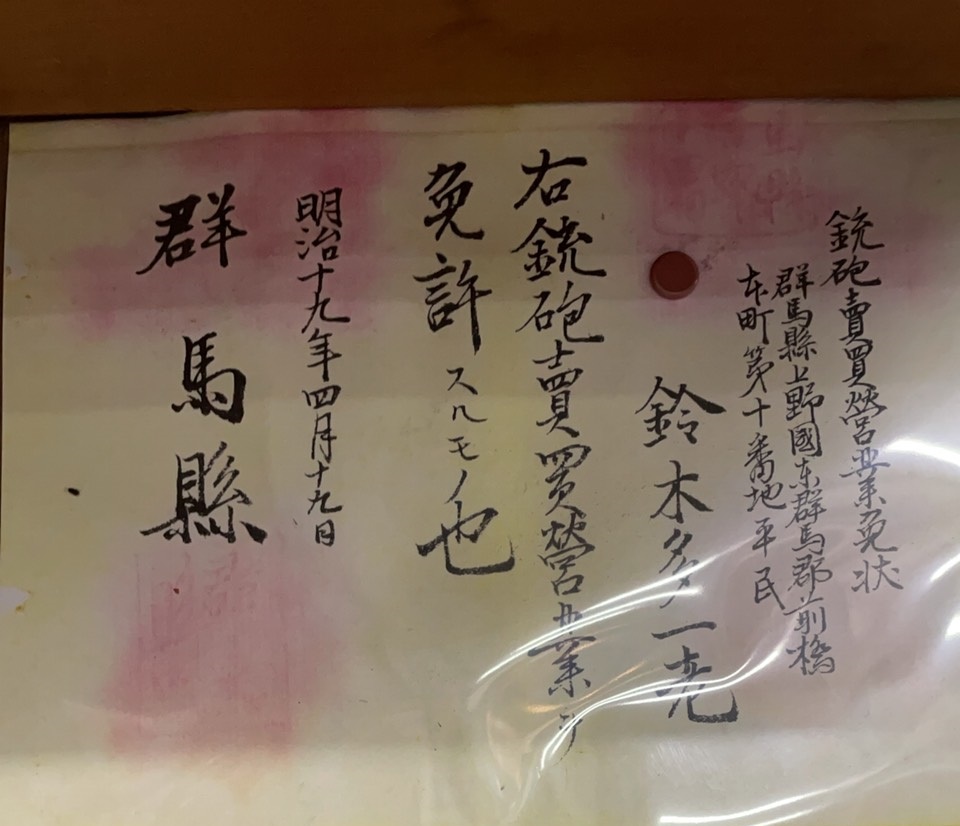 銃砲賣買營業免状
群馬縣上野國东群馬郡前橋
本町第十番地平民
鈴木多一
右銃砲賣買營業ヲ
免許スルモノ也
明治十九年四月十九日
群馬縣